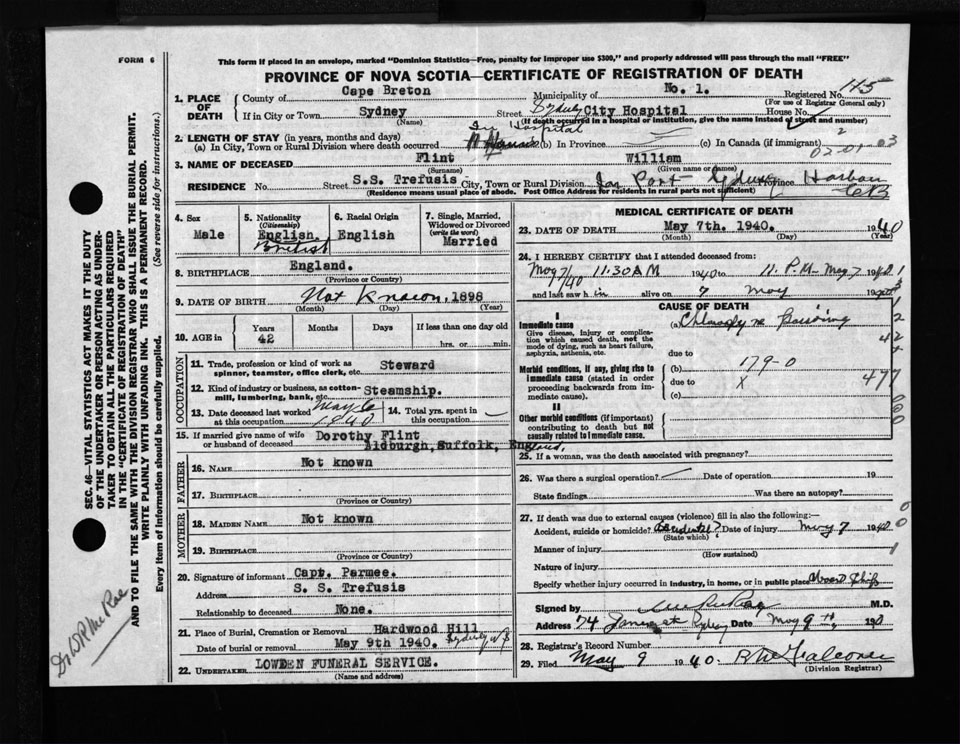 FORM 6
This form if placed in an envelope, marked "Dominion Statistics—Free, penalty for improper use $300," and properly addressed will pass through the mail "FREE"
PROVINCE OF NOVA SCOTIA—CERTIFICATE OF REGISTRATION OF DEATH
1. PLACE OF DEATH
County of Cape Breton Municipality of No. 1. Registered No. 145
(For use of Registrar General only)
If in City or Town Sydney Street Sydney City Hospital House No.
(Name) (If death occurred in a hospital or institution, give the name instead of street and number)
2. LENGTH OF STAY (in years, months and days) In Hospital
(a) In City, Town or Rural Division where death occurred (b) In Province (c) In Canada (if immigrant)
02-01-03
3. NAME OF DECEASED Flint William
(Surname) (Given name or names)
RESIDENCE No. Street S.S. Trefusis City, Town or Rural Division In Port Sydney Province Harbour CB
(Residence means usual place of abode. Post Office Address for residents in rural parts not sufficient)
4. Sex
Male
5. Nationality
(Citizenship)
English
British
6. Racial Origin
English
7. Single, Married, Widowed or Divorced
(write the word)
Married
8. BIRTHPLACE England.
(Province or Country)
9. DATE OF BIRTH Not Known, 1898
(Month) (Day) (Year)
10. AGE in Years Months Days If less than one day old
42 hrs. or min.
OCCUPATION
11. Trade, profession or kind of work as spinner, teamster, office clerk, etc. Steward
12. Kind of industry or business, as cotton-mill, lumbering, bank, etc. Steamship.
13. Date deceased last worked at this occupation May 6 1940
14. Total yrs. spent in this occupation
15. If married give name of wife or husband of deceased Dorothy Flint
Aldburgh, Suffolk, England,
FATHER
16. NAME Not known
17. BIRTHPLACE
(Province or Country)
MOTHER
18. MAIDEN NAME Not known
19. BIRTHPLACE
(Province or Country)
20. Signature of informant Capt. Parmee.
Address S. S. Trefusis
Relationship to deceased None.
21. Place of Burial, Cremation or Removal Hardwood Hill
Date of burial or removal May 9th 1940. Sydney N S
22. UNDERTAKER LOWDEN FUNERAL SERVICE.
(Name and address)
MEDICAL CERTIFICATE OF DEATH
23. DATE OF DEATH May 7th. 1940. 1940
(Month) (Day) (Year)
24. I HEREBY CERTIFY that I attended deceased from:
May 7/40 11.30 AM 1940 to 11. P.M. May 7 1940
and last saw h im alive on 7 May 19
CAUSE OF DEATH
I
Immediate cause
Give disease, injury or complication which caused death, not the mode of dying, such as heart failure, asphyxia, asthenia, etc.
(a)
due to
Morbid conditions, if any, giving rise to immediate cause (stated in order proceeding backwards from immediate cause).
(b) 179-0
due to X
(c)
477
II
Other morbid conditions (if important) contributing to death but not causally related to immediate cause.
25. If a woman, was the death associated with pregnancy?
26. Was there a surgical operation? Date of operation 19
State findings Was there an autopsy?
27. If death was due to external causes (violence) fill in also the following:—
Accident, suicide or homicide? Accidental? Date of injury May 7 1940
(State which)
Manner of injury
(How sustained)
Nature of injury
Specify whether injury occurred in industry, in home, or in public place Aboard Ship
Signed by M.D.
Address 74 Sydney Date May 9th 1940
28. Registrar's Record Number
29. Filed May 9 1940. Falconer
(Division Registrar)
SEC. 46—VITAL STATISTICS ACT MAKES IT THE DUTY OF THE UNDERTAKER OR PERSON ACTING AS UNDERTAKER TO OBTAIN ALL THE PARTICULARS REQUIRED IN THE "CERTIFICATE OF REGISTRATION OF DEATH" AND TO FILE THE SAME WITH THE DIVISION REGISTRAR WHO SHALL ISSUE THE BURIAL PERMIT.
WRITE PLAINLY WITH UNFADING INK. THIS IS A PERMANENT RECORD.
Every item of information should be carefully supplied. (See reverse side for instructions.)
Dr McRae